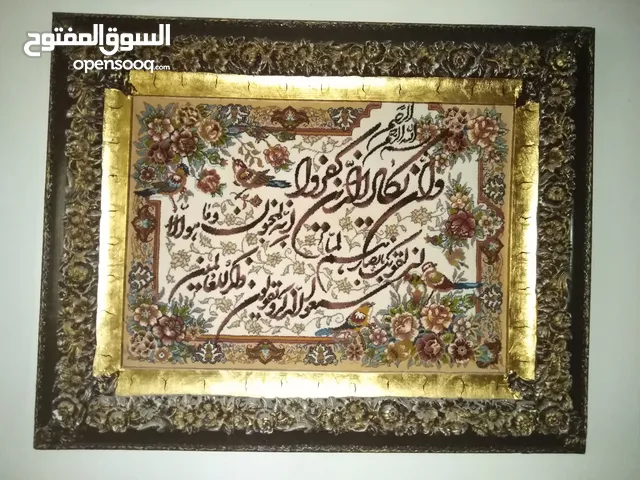 السوق المفتوح
opensooq.com
بسم الله الرحمن الرحيم
وان يكاد الذين كفروا
ليزلقونك بابصارهم لما
سمعوا الذكر ويقولون
انه لمجنون وما هو الا
ذكر للعالمين